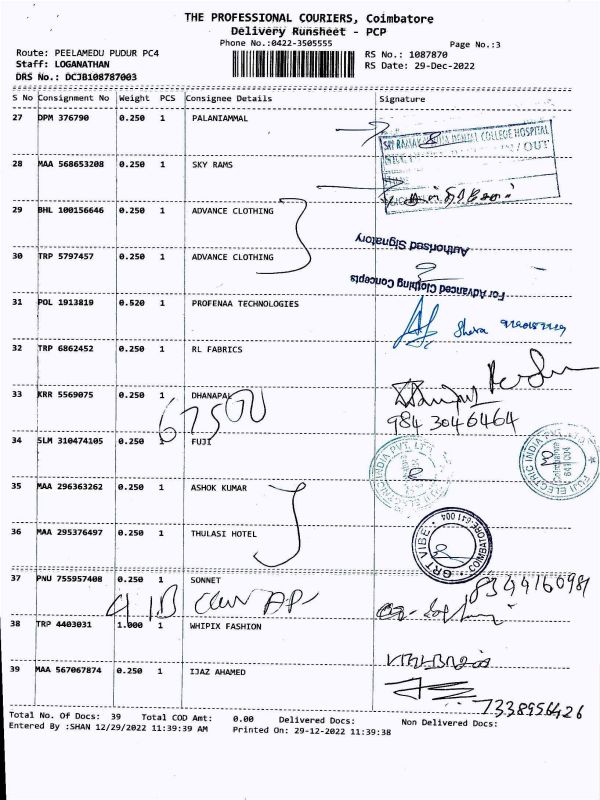 THE PROFESSIONAL COURIERS, Coimbatore
Delivery Runsheet - PCP
Phone No.:0422-3505555
Page No.:3
Route: PEELAMEDU PUDUR PC4
RS No.: 1087870
Staff: LOGANATHAN
RS Date: 29-Dec-2022
DRS No.: DCJB108787003
S No Consignment No Weight PCS Consignee Details Signature
27 DPM 376790 0.250 1 PALANIAMMAL
28 MAA 568653208 0.250 1 SKY RAMS
29 BHL 100156646 0.250 1 ADVANCE CLOTHING
Authorised Signatory
30 TRP 5797457 0.250 1 ADVANCE CLOTHING
For Advanced Clothing Concepts
31 POL 1913819 0.520 1 PROFENAA TECHNOLOGIES
32 TRP 6862452 0.250 1 RL FABRICS
33 KRR 5569075 0.250 1 DHANAPAL
984 3046464
34 SLM 310474105 0.250 1 FUJI
FUJI ELECTRIC INDIA PVT. LTD.
Coimbatore 641 004
35 MAA 296363262 0.250 1 ASHOK KUMAR
36 MAA 295376497 0.250 1 THULASI HOTEL
GRT VIBE COIMBATORE-641 004
37 PNU 755957408 0.250 1 SONNET
8344160981
38 TRP 4403031 1.000 1 WHIPIX FASHION
39 MAA 567067874 0.250 1 IJAZ AHAMED
7338956426
Total No. Of Docs: 39 Total COD Amt: 0.00 Delivered Docs: Non Delivered Docs:
Entered By :SHAN 12/29/2022 11:39:39 AM Printed On: 29-12-2022 11:39:38